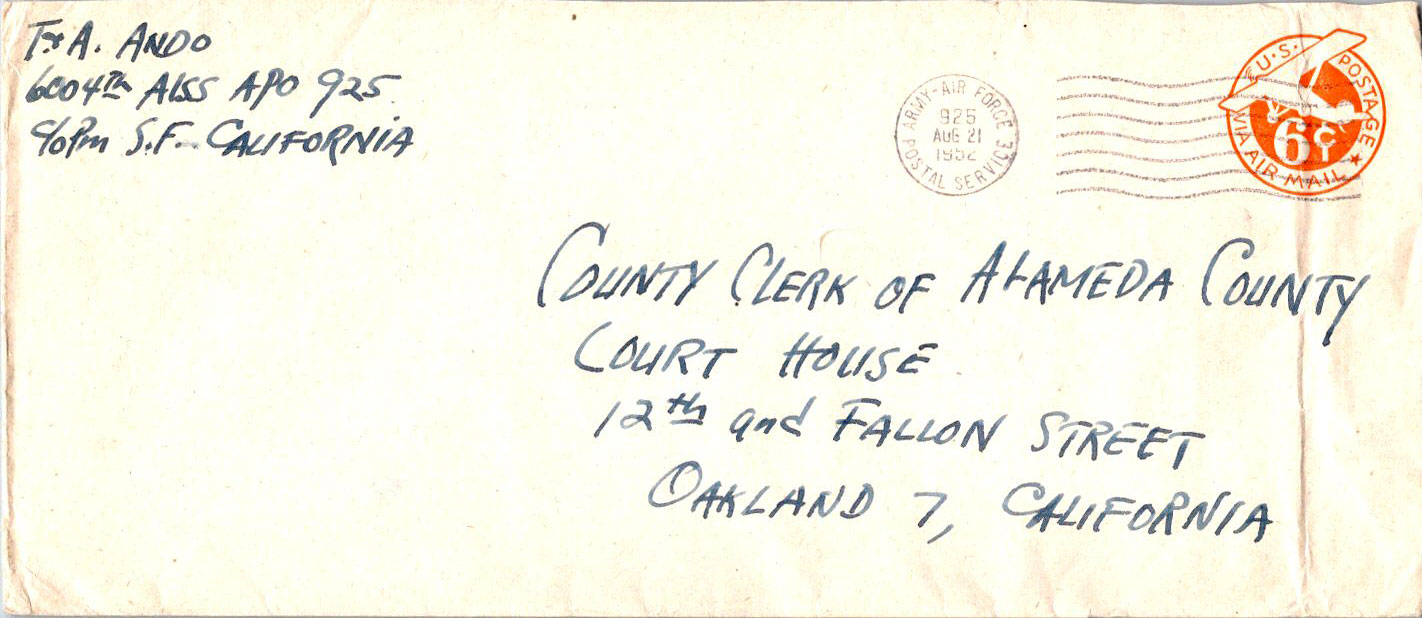 T+A. ANDO
6004th AISS APO 925
c/o Pm S.F. CALIFORNIA
ARMY-AIR FORCE
925
AUG 21
1952
POSTAL SERVICE
U.S. POSTAGE
6¢
VIA AIR MAIL
COUNTY CLERK OF ALAMEDA COUNTY
COURT HOUSE
12th and FALLON STREET
OAKLAND 7, CALIFORNIA